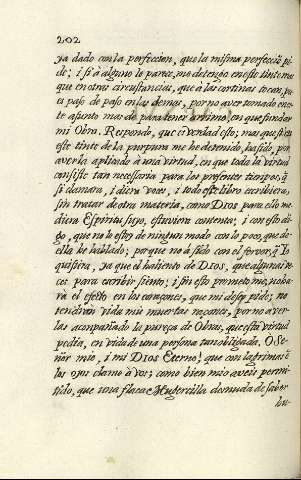 202
ya dado con la perfeccion, que la misma perfecciō pi-
de; i si à alguno le parece, me detengo en este tinte mas
que en otras circustancias, que à las cortinas tocan, pues
paso de paso en las demas, por no aver tomado en es-
te asunto mas de para tener arrimo, en que fundar
mi Obra. Respondo, que es verdad esto; mas que si en
este tinte de la purpura me he detenido, ha sido, por
averla aplicado à una virtud, en que toda la virtud
consiste tan necessaria para los presentes tiempos, q̃
si clamara, i diera voces, i todo este libro escribiera,
sin tratar de otra materia, como Dios para ello me
diera Espiritu suyo, estuviera contenta; i con esto di-
go, que no lo estoy de ningun modo con lo poco, que de
ella he hablado; porque no à sido con el fervor, q̃ Yo
quisiera, ya que el haliento de Dios, que algunas ve-
ces para escribir siento; i sin esto prometome, no ha-
ra el efecto en los corazones, que mi deseo pide; no
tendran vida mis muertas raçones, por no aver-
las acompañado la pureza de Obras, que esta virtud
pedia, en vida de una persona tan obligada. O Se-
ñor mio, i mi Dios Eterno! que con lagrimas ē
los ojos clamo à vos; como bien mio aveis permi-
tido, que una flaca Mugercilla desnuda de saber